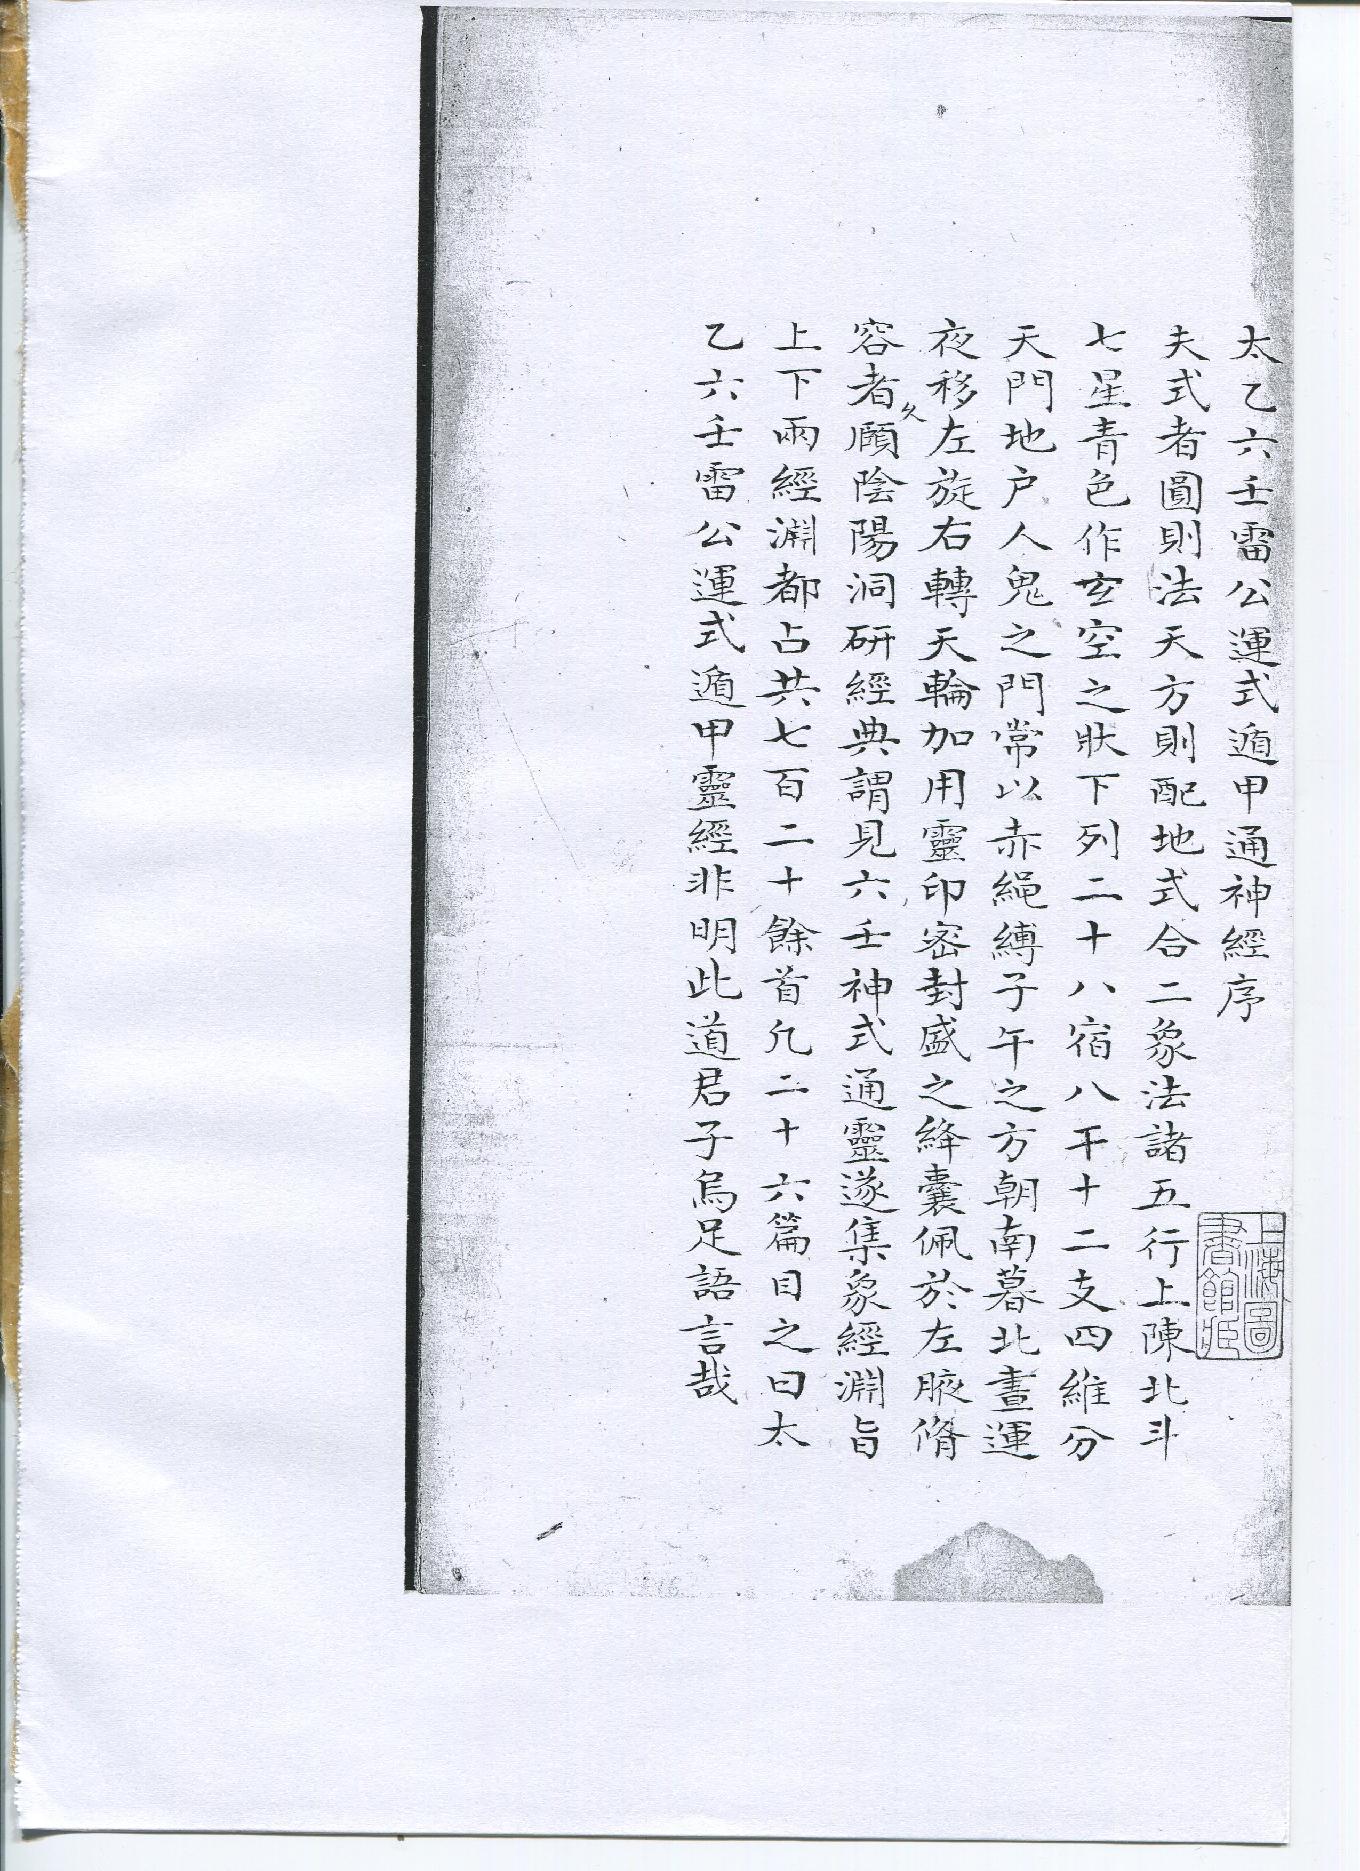 太乙六壬雷公運式遁甲通神經序
夫式者圓則法天方則配地式合二象法諸五行上陳北斗
七星青色作玄空之狀下列二十八宿八干十二支四維分
天門地户人鬼之門常以赤繩縛子午之方朝南暮北晝運
夜移左旋右轉天輪加用靈印密封盛之絳囊佩於左腋脩
容者久願陰陽洞研經典謂見六壬神式通靈遂集象經淵旨
上下兩經淵都占共七百二十餘首凢二十六篇目之曰太
乙六壬雷公運式遁甲靈經非明此道君子烏足語言哉
上海圖書館藏